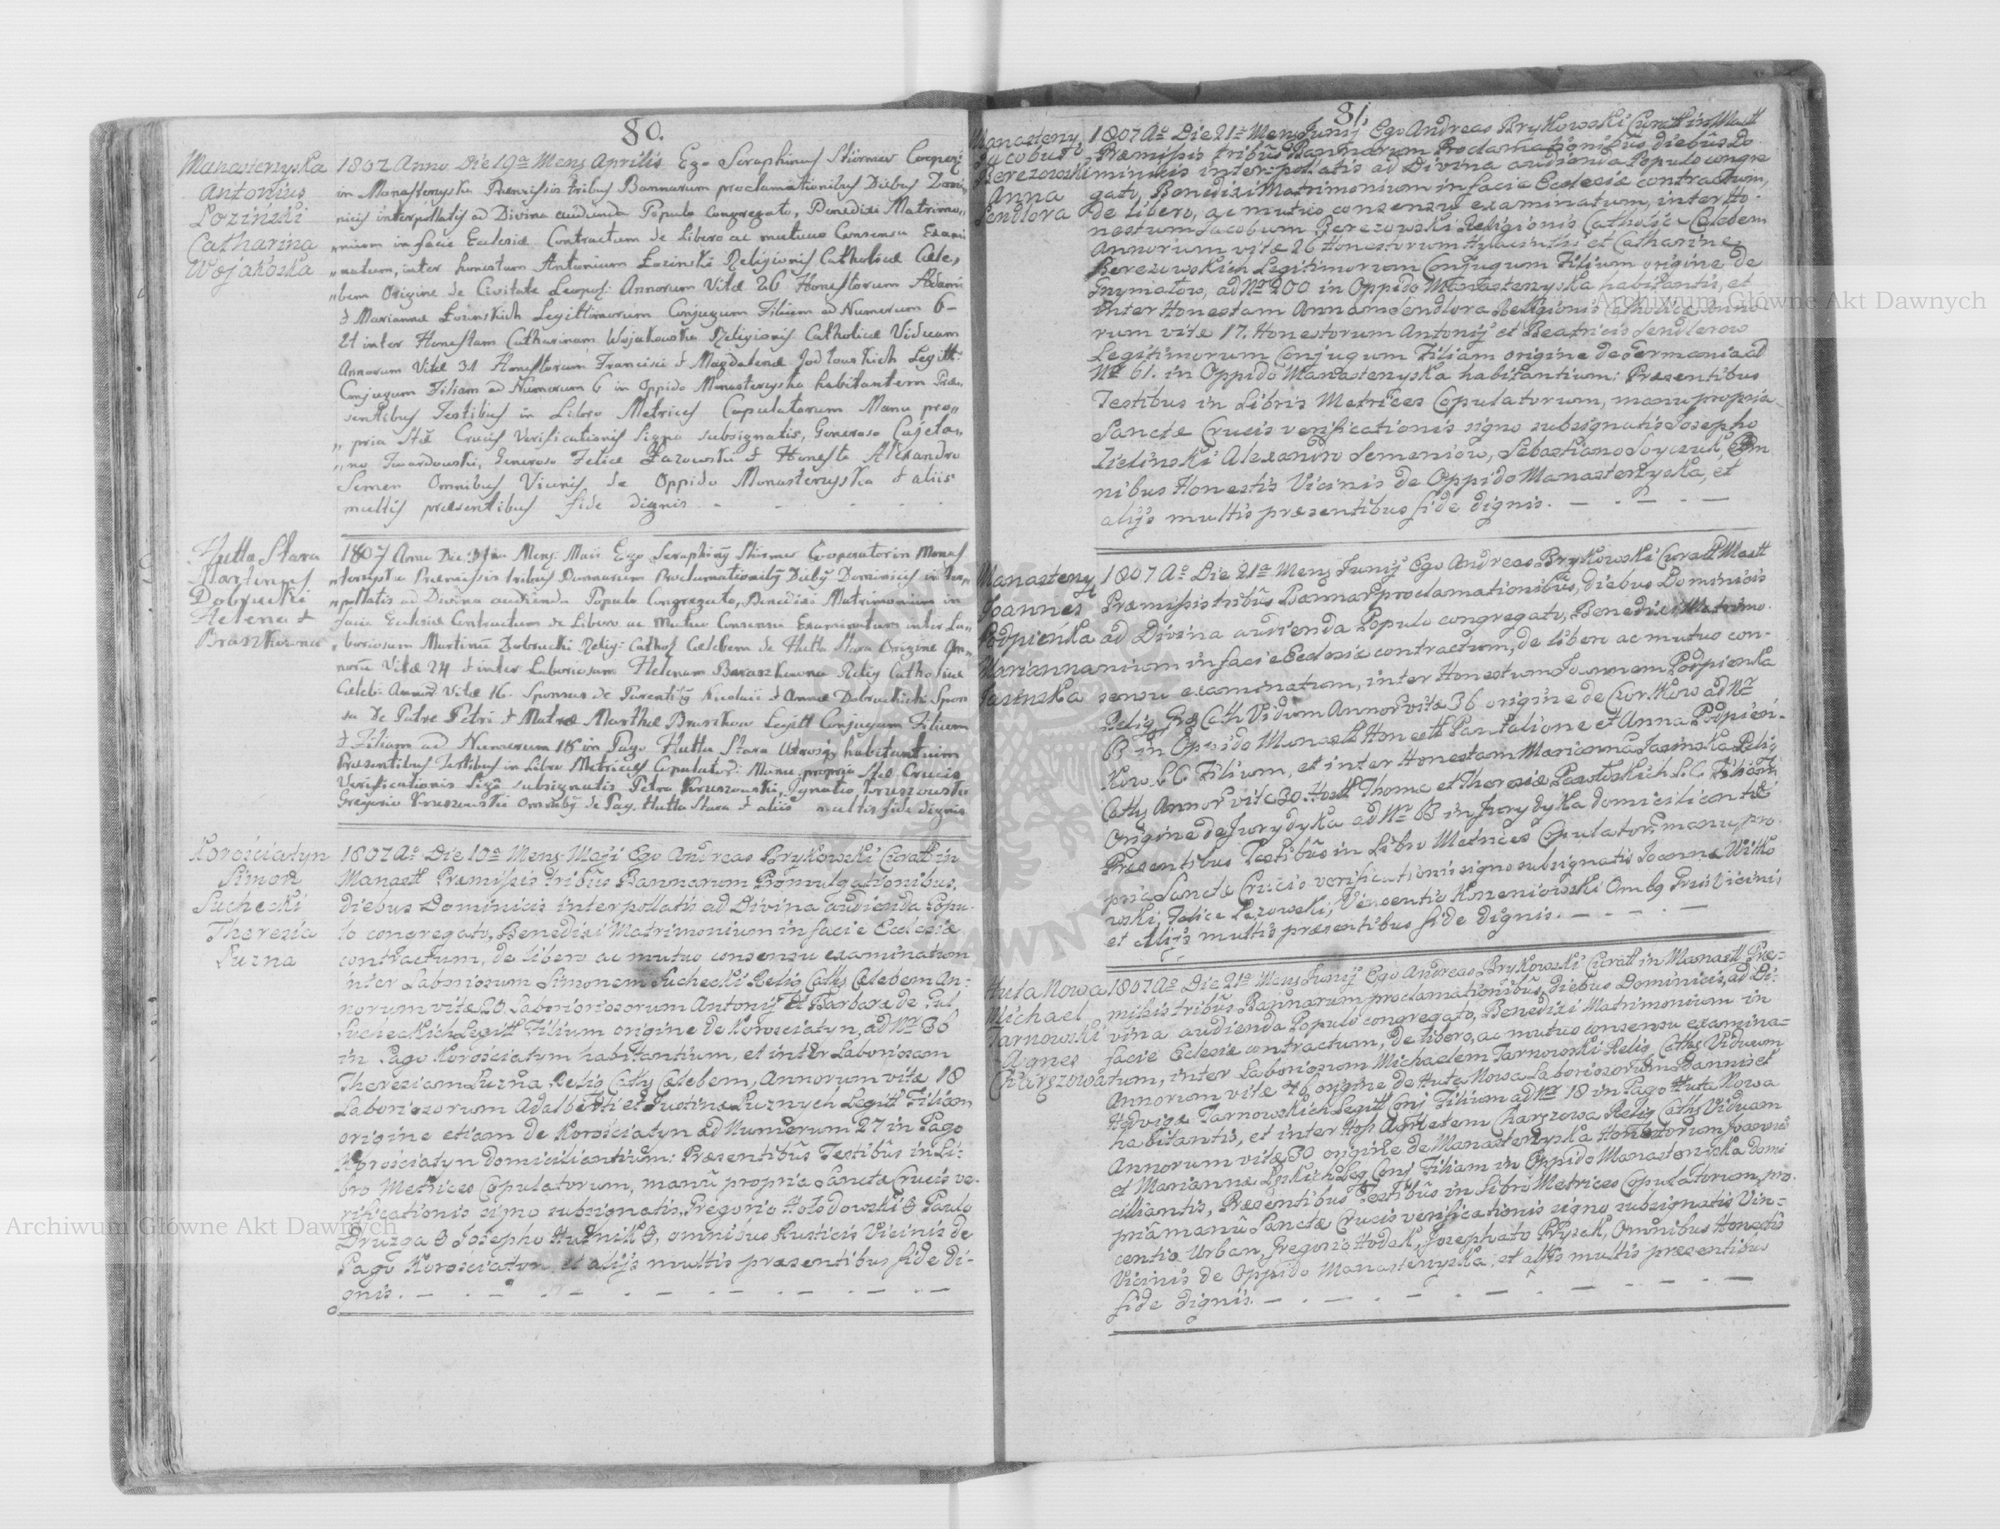 80.
Manasterzyska
Antonius
Łozinski
Catharina
Wojakoska
1807 Anno Die 19na Mens Aprilis Ego Seraphinus Stürmer Cooper:
in Monasterzyska Præmissis tribus Bannarum proclamationibus Diebus Domi,,
nicis interpollatis ad Divina audienda Populo Congregato, Benedixi Matrimo,,
,,nium in facie Eclesiæ Contractum de Libero ac mutuo Consensu Exami
,,natum, inter honestum Antonium Łozinski Religionis Catholicæ Cæle,
,,bem Origine de Civitate Leopoli Annorum Vitæ 26 Honestorum Adami
& Mariannæ Łozinskich Legittimorum Conjugum Filium ad Numerum 6 –
Et inter Honestam Catharinam Wojakowska Religionis Catholicæ Viduam
Annorum Vitæ 31 Honestorum Francisci & Magdalenæ Legitt:
Conjugum Filiam ad Numerum 6 in Oppido Monasterzyska habitantem Præ,
sentibus Testibus in Libro Metrices Copulatorum Manu pro,,
,,pria Stæ Crucis Verificationis Signo subsignatis, Generoso Cajeta,,
,,no Twardowski, Generoso Felice Łazowski & Honesto Alexandro
Semen Omnibus Vicinis de Oppido Monasterzyska & aliis
multis præsentibus fide dignis
Hutta Stara
Martinus
Dobrucki
Helena
Braszkowna
1807 Anno Die Mens: Maii Ego Seraphinus Stürmer Cooperator in Monas
,,terzyska Præmissis tribus Bannarum Proclamationibus Diebus Dominicis inter,,
,,pollatis ad Divina audienda Populo Congregato, Benedixi Matrimonium in
facie Eclesiæ Contractum de Libero ac Mutuo Consensu Examinatum inter La,,
,,boriosum Martinum Dobrucki Relig: Cathol: Cælebem de Hutta Stara Origine An,,
norum Vitæ 24 & inter Laboriosam Helenam Baraszkowna Relig Catholicæ
Celeb: Annor Vitæ 16. Sponsus de Parentibus Nicolaii & Annæ Dobruckich Spon
sa De Patre Petri & Matræ Marthæ Braszkow Legitt Conjugum Filium
& Filiam ad Numerum 18 in Pago Hutta Stara Utrosq habitantium
Præsentibus Testibus in Libro Metrices Copulator: Manu propria Stæ Crucis
Verificationis Signo subsignatis Petro Kruszowski, Ignatio Kruszowski
Gregorio Kruszowski Omnibus de Pag: Hutta Stara & aliis multis fide dignis
Korosciatyn
Simon
Suchecki
Theresia
Łuzna
1807 Ao Die 10a Mens Maji Ego Andreas Brykowski Curatt in
Manastt Præmissis tribus Bannarum Promulgationibus,
diebus Dominicis interpollatis ad Divina audienda Popu-
lo congregato, Benedixi Matrimonium in facie Ecclesiæ
contractum, de libero ac mutuo consensu examinatum
inter Laboriosum Simonem Suchecki Relig Cath Cælebem An:
norum vitæ 20 Laboriosorum Antonij et Barbaræ de Pul
Sucheckich Legitt Filium origine de Korosciatyn, ad Nr 36
in Pago Korosciatyn habitantium, et inter Laboriosam
Theresiam Łuzna Relig Cath Cælebem, Annorum vitæ 18
Laboriosorum Adalberti et Justinæ Łuznych Legitt Filiam
origine etiam de Korosciatyn ad Numerum 27 in Pago
Korosciatyn domiciliantium: Præsentibus Testibus in Li-
bro Metrices Copulatorum, manu propria Sanctæ Crucis ve-
rificationis signo subsignatis, Gregorio Hołodowski & Paulo
Druzga & Josepho Huznik &, omnibus Rusticis Vicinis de
Pago Korosciatyn, et alijs multis præsentibus fide di-
gnis.
81.
Manasterzy
Jacobus
Berezowski
Anna
Sendlora
1807 Ao Die 21a Mens Junij Ego Andreas Brykowski Curatt in Mastt
Præmissis tribus Bannarum Proclamationibus diebus Do
minicis interpolatis ad Divina audienda Populo congre
gato, Benedixi Matrimonium in facie Ecclesiæ contractum,
de libero, ac mutuo consensu examinatum, inter Ho-
nestum Jacobum Berezowski Religionis Catholicæ Cælebem
Annorum vitæ 26 Honestorum et Catharinæ
Berezowskich Legitimorum Conjugum Filium origine de
ad Nr 200 in Oppido Manasterzyska habitantis, et
inter Honestam Annam Sendlora Religionis Catholicæ Anno
rum vitæ 17. Honestorum Antonij et Beatricis Sendlerow
Legitimorum Conjugum Filiam origine de Germania ad
Nr 61. in Oppido Manasterzyska habitantium: Præsentibus
Testibus in Libris Metrices Copulatorum, manu propria
Sanctæ Crucis verificationis signo subsignatis Josepho
Zielinski Alexandro Semeniow, Sebastiano Om
nibus Honestis Vicinis de Oppido Manasterzyska, et
alijs multis præsentibus fide dignis.
Manasterzy
Joannes
Podpienka
Marianna
Jasinska
1807 Ao Die 21a Mens Junij Ego Andreas Brykowski Curatt Mastt
Præmissis tribus Bannar proclamationibus, diebus Dominicis
ad Divina audienda Populo congregato, Benedixi Matrimo-
nium in facie Eclesiæ contractum, de libero ac mutuo con-
sensu examinatum, inter Honestum Joannem Podpienka
Relig Cath Viduum Annor vitæ 36 origine de Czortkow ad Nr
63 in Oppido Manastt Honestt Pantalione et Anna Podpien-
kow L C. Filium, et inter Honestam Marianna Jasinska Relig
Cath Annor vitæ 30. Honstt Thoma et Theresiæ L.C. Filiam
Origine de Jurydyka ad Nr 63 in Jurydyka domiciliantis
Præsentibus Testibus in Libro Metrices Copulatorum manu pro-
pria Sanctæ Crucis verificationis signo subsignatis Joanne Witko
wski, Felice Lazowski, Vincentio Korzeniowski Omnibus Vicinis
et Alijs multis præsentibus fide dignis.
Huta Nowa
Michael
Tarnowski
Agnes
Charszowa
1807 Ao Die 21a Mens Junij Ego Andreas Brykowski Curatt in Manastt Præ-
misis tribus Bannarum proclamationibus, diebus Dominicis, ad Di-
vina audienda Populo congregato, Benedixi Matrimonium in
facie Eclesiæ contractum, de libero, ac mutuo consensu examina-
tum, inter Laboriosum Michaelem Tarnowski Relig Cath Viduum
Annorum vitæ origine de Huta Nowa Laboriosorum Joannis et
Hedvigæ Tarnowskich Legitt Conj Filium ad Nr 18 in Pago Huta Nowa
habitantis, et inter Agnetem Charszowa Relig Cath Viduam
Annorum vitæ 30 origine de Manasterzyska Honestorum Joannis
et Mariannæ Leg Conj Filiam in Oppido Manasterziska domi
ciliantis, Præsentibus Testibus in Libro Metrices Copulatorum, pro-
pria manu Sanctæ Crucis verificationis signo subsignatis Vin-
centio Urban, Gregorio Hodak, Josephato Omnibus Honestis
Vicinis de Oppido Manasterzyska, et aliis multis præsentibus
fide dignis.
Archiwum Główne Akt Dawnych
Archiwum Główne Akt Dawnych